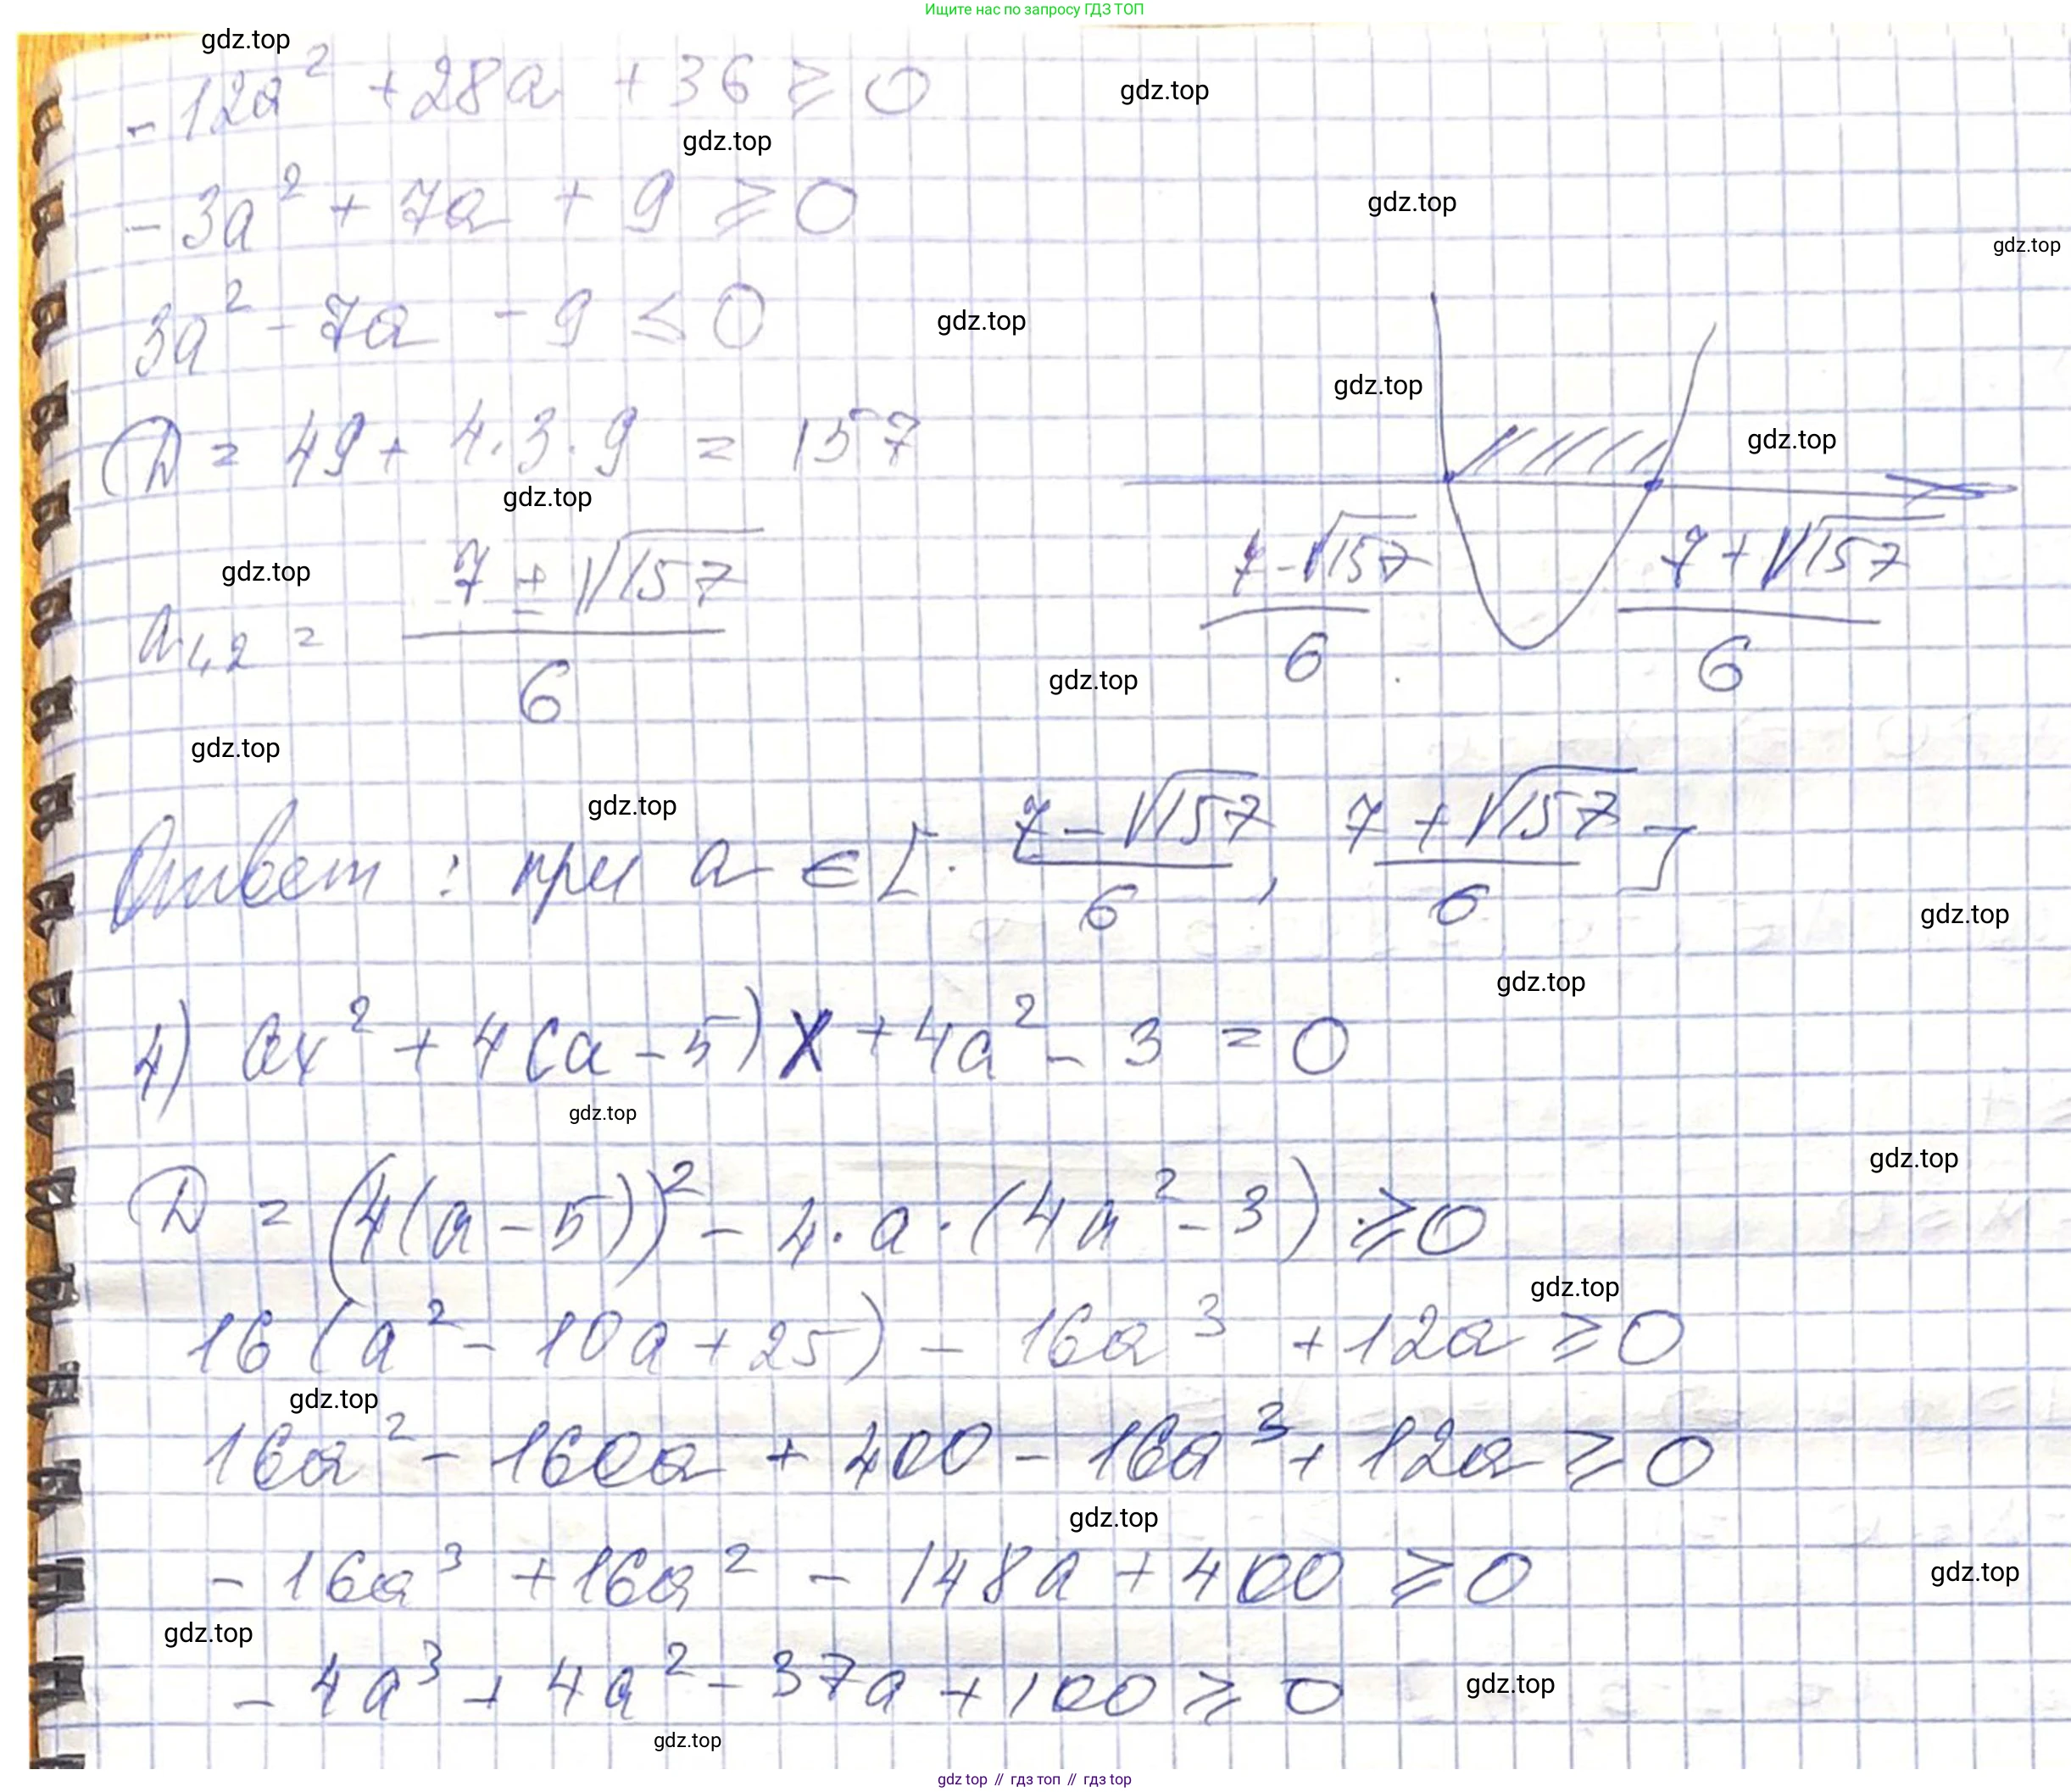 Ищите нас по запросу ГДЗ ТОП
gdz.top
-12a² + 28a + 36 ≥ 0
gdz.top
gdz.top
-3a² + 7a + 9 ≥ 0
gdz.top
gdz.top
3a² - 7a - 9 ≤ 0
gdz.top
gdz.top
D = 49 + 4·3·9 = 157
gdz.top
gdz.top
a₁,₂ = (7 ± √157)/6
gdz.top
(7 - √157)/6 (7 + √157)/6
gdz.top
gdz.top
gdz.top
Ответ: при a ∈ [(7 - √157)/6, (7 + √157)/6]
gdz.top
gdz.top
4) ax² + 4(a - 5)x + 4a² - 3 = 0
gdz.top
gdz.top
D = (4(a - 5))² - 4·a·(4a² - 3) ≥ 0
gdz.top
16(a² - 10a + 25) - 16a³ + 12a ≥ 0
gdz.top
16a² - 160a + 400 - 16a³ + 12a ≥ 0
gdz.top
-16a³ + 16a² - 148a + 400 ≥ 0
gdz.top
gdz.top
-4a³ + 4a² - 37a + 100 ≥ 0
gdz.top
gdz.top
gdz top // гдз топ // gdz top